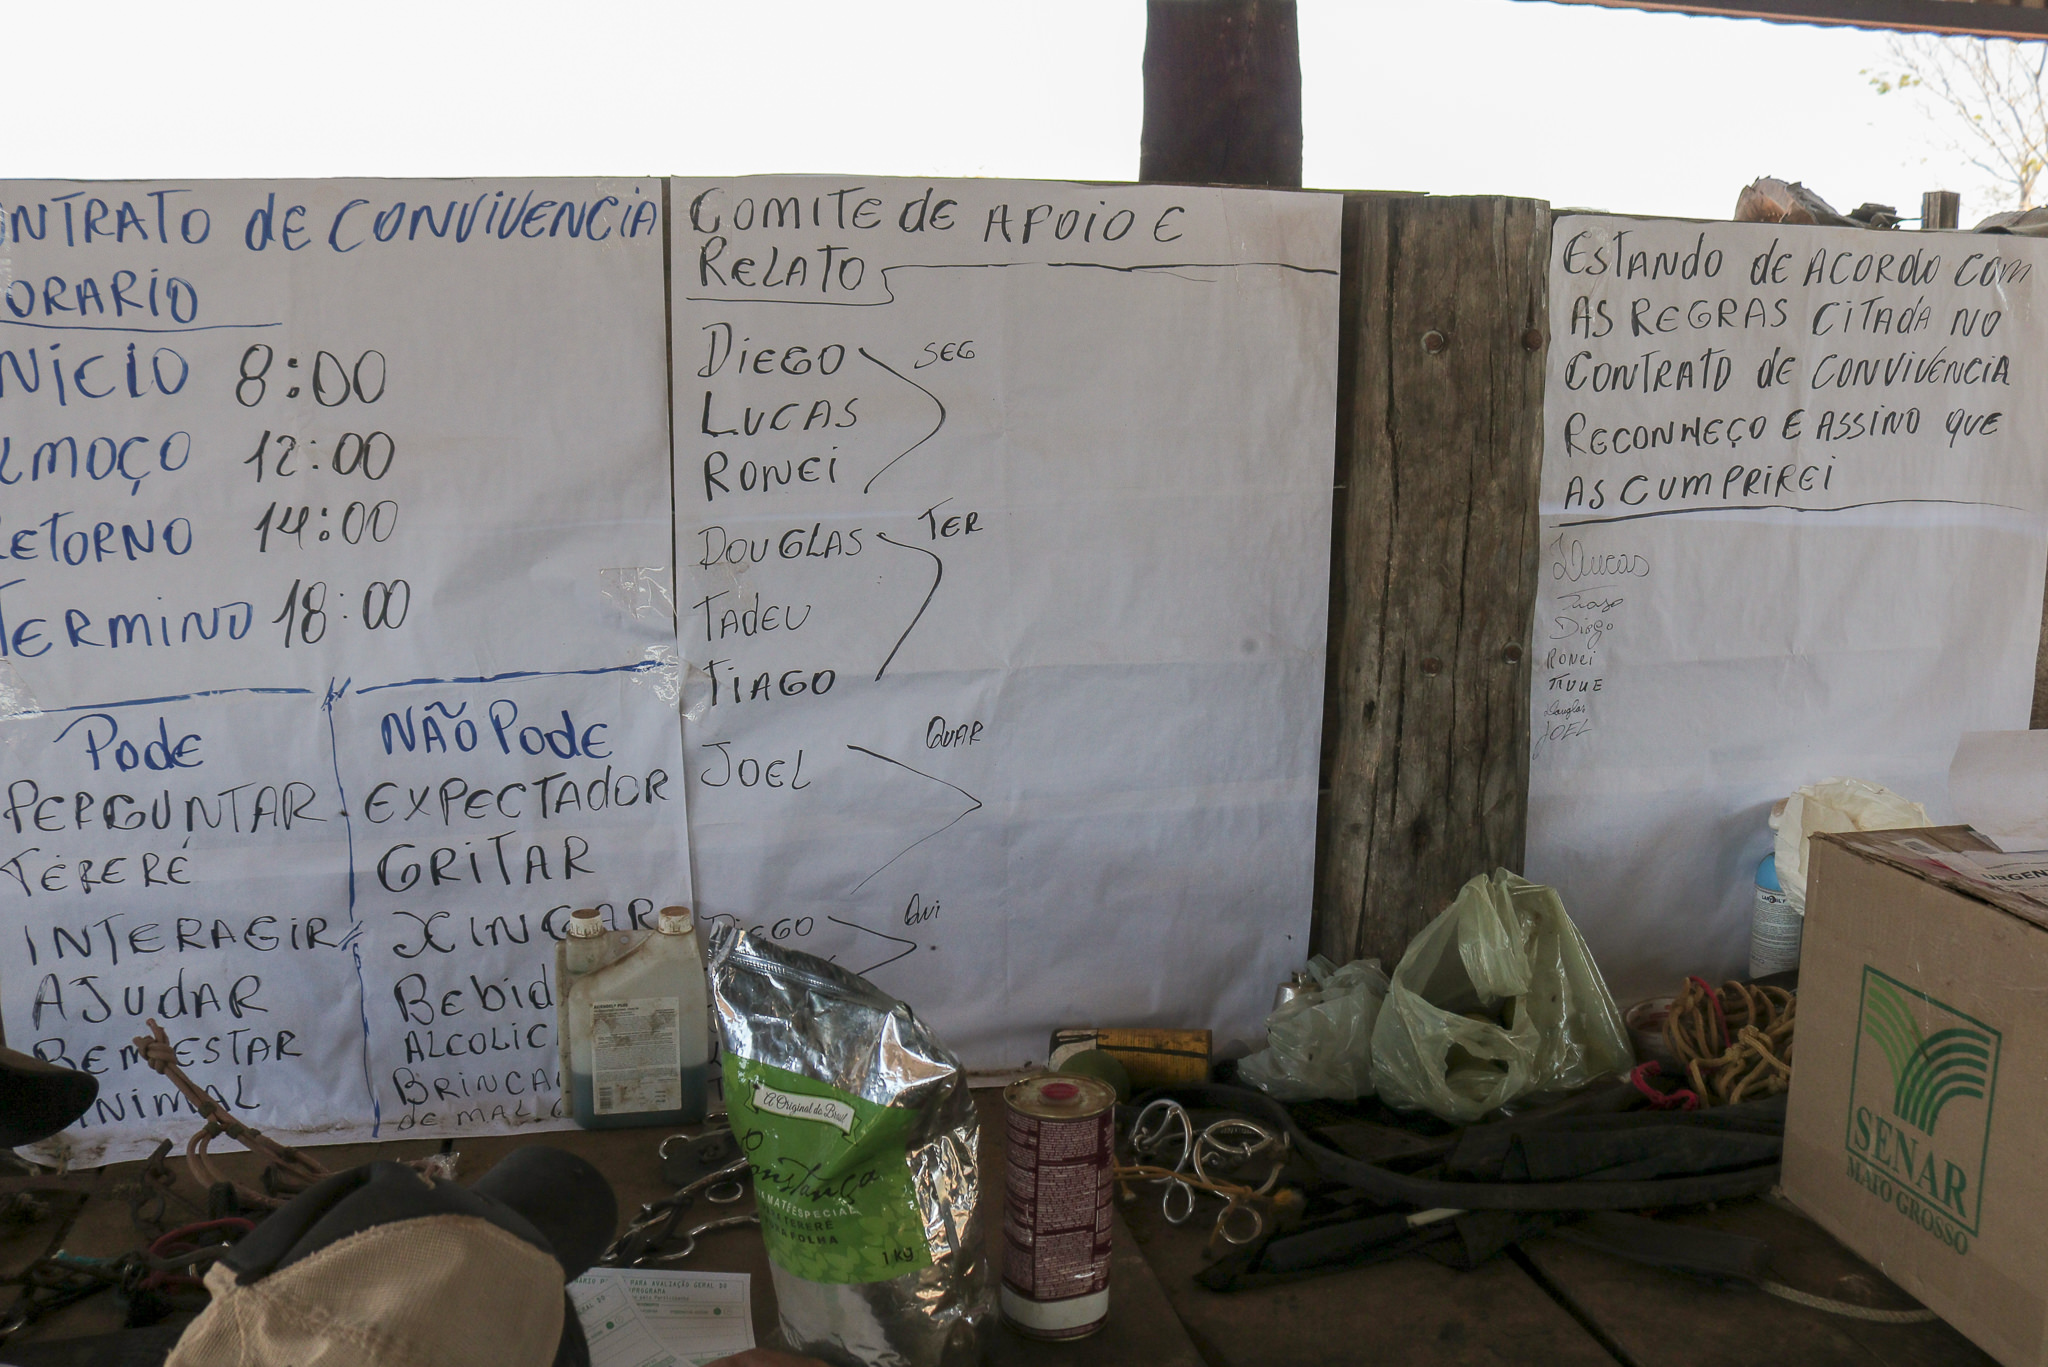 ONTRATO de CONVIVENCIA
ORARIO
NICIO 8:00
LMOÇO 12:00
RETORNO 14:00
TERMINO 18:00
Pode
PERGUNTAR
TERERÉ
INTERAGIR
AJUDAR
BEM ESTAR
ANIMAL
NÃO Pode
EXPECTADOR
GRITAR
XINGAR
Bebid
ALCOLIC
BRINCA
de MAL G
COMITE de APOIO E
RELATO
DIEGO SEG
LUCAS
RONEI
DOUGLAS TER
TADEU
TIAGO
JOEL QUAR
DIEGO QUI
ESTANDO de ACORDO COM
AS REGRAS CITADA NO
CONTRATO de CONVIVENCIA
RECONHEÇO E ASSINO QUE
AS CUMPRIREI
Lucas
Tiago
Diego
RONEI
Douglas
JOEL
A Original do Brasil
Constança
MATE ESPECIAL
TERERÉ
FOLHA
1 kg
PARA AVALIAÇÃO GERAL DO
PROGRAMA
URGEN
SENAR
MATO GROSSO